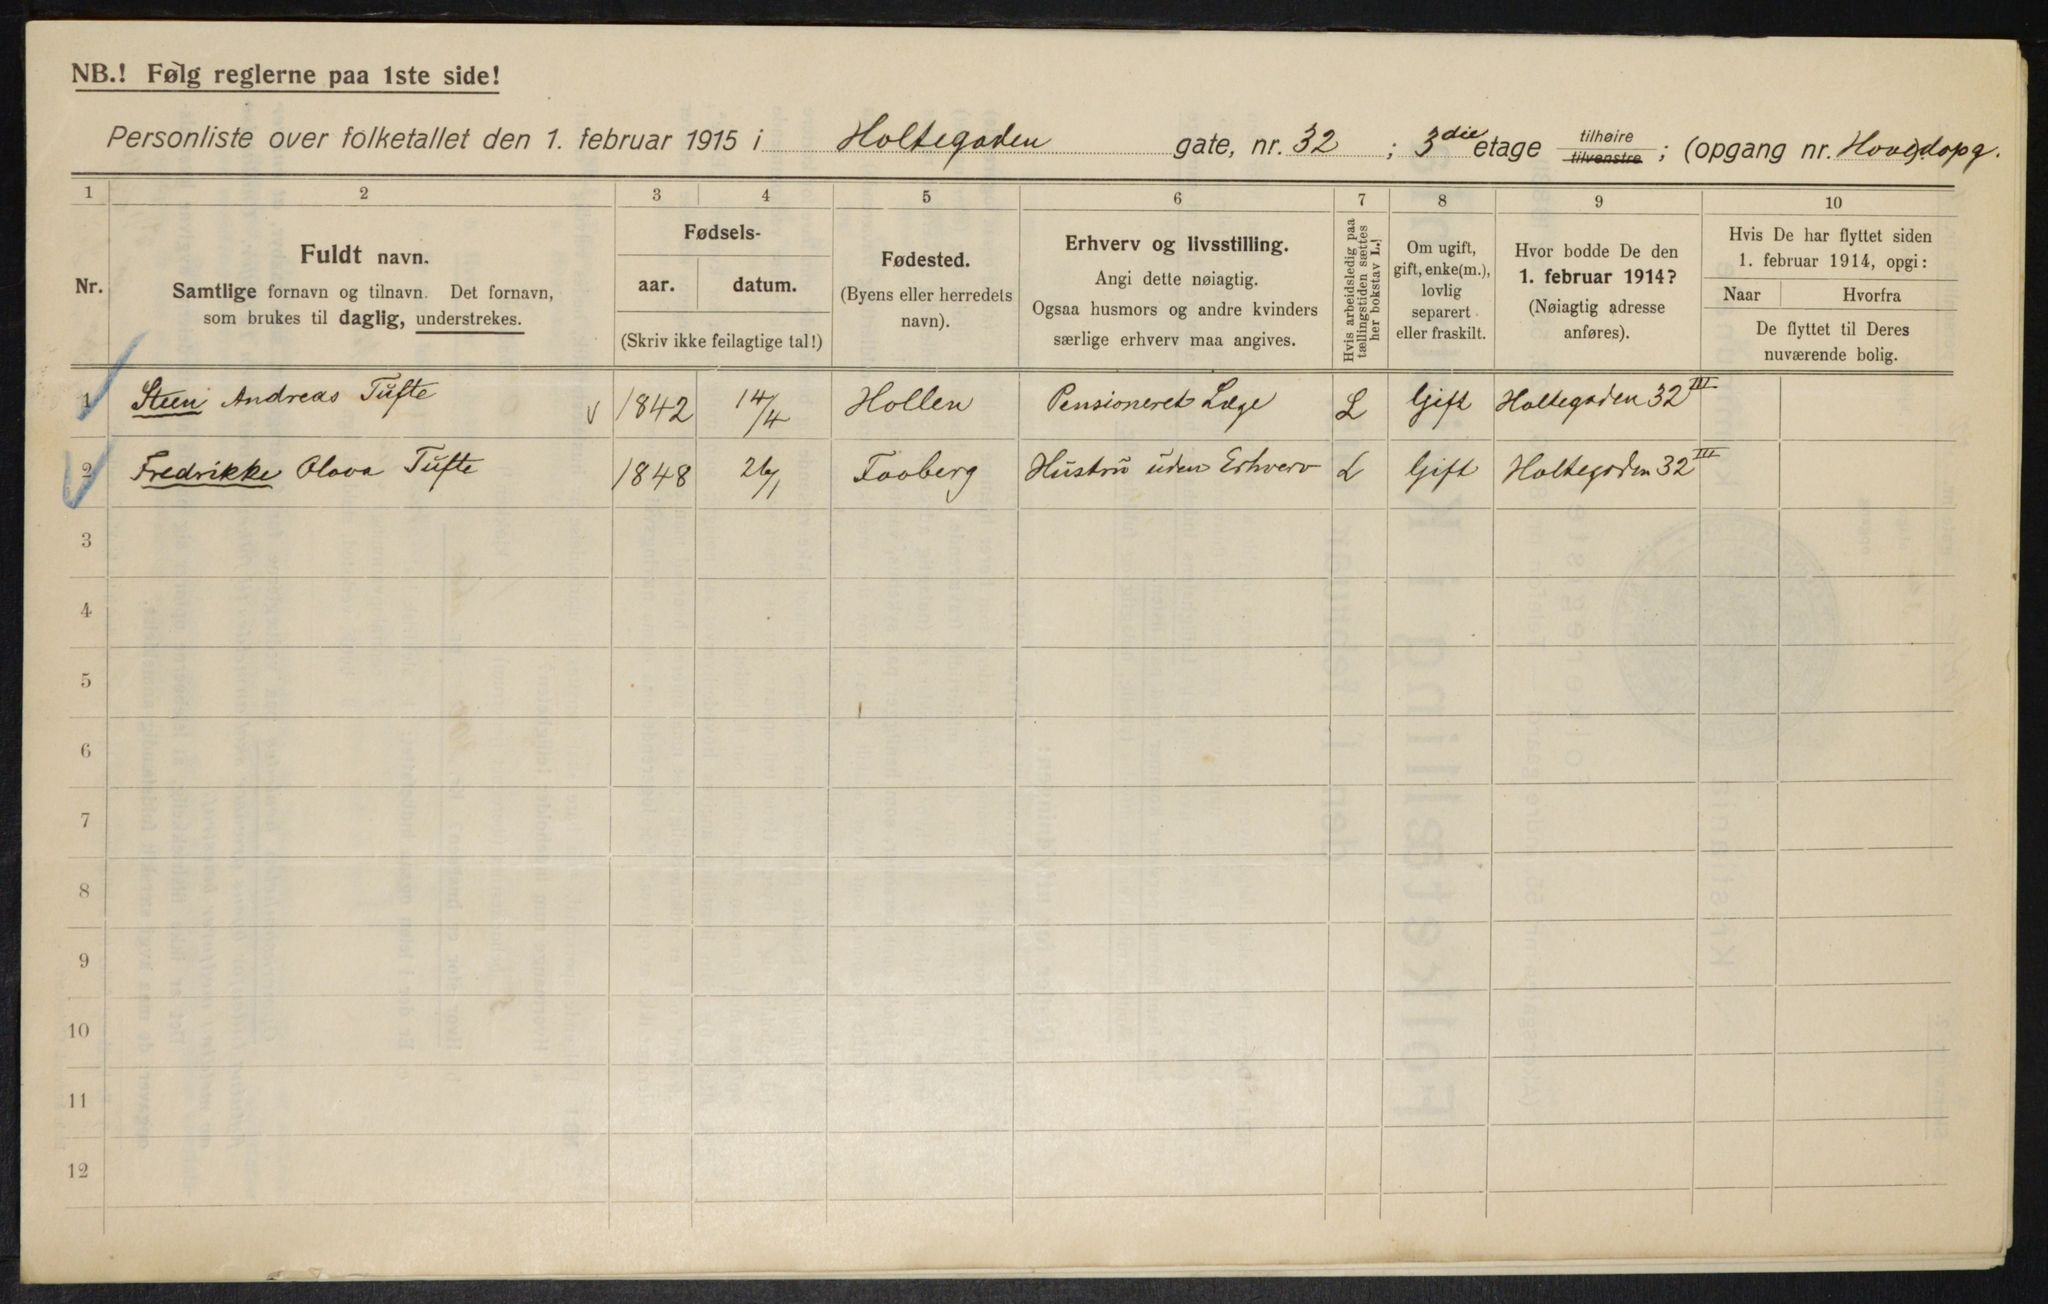 NB.! Følg reglerne paa 1ste side!
Personliste over folketallet den 1. februar 1915 i Holtegaden gate, nr. 32 ; 3die etage tilhøire tilvenstre ; (opgang nr. Hovedopg.
1 2 3 4 5 6 7 8 9 10
Nr.
Fuldt navn.
Samtlige fornavn og tilnavn. Det fornavn,
som brukes til daglig, understrekes.
Fødsels-
aar. datum.
(Skriv ikke feilagtige tal!)
Fødested.
(Byens eller herredets
navn).
Erhverv og livsstilling.
Angi dette nøiagtig.
Ogsaa husmors og andre kvinders
særlige erhverv maa angives.
Hvis arbeidsledig paa
tællingstiden sættes
her bokstav L.!
Om ugift,
gift, enke(m.),
lovlig
separert
eller fraskilt.
Hvor bodde De den
1. februar 1914?
(Nøiagtig adresse
anføres).
Hvis De har flyttet siden
1. februar 1914, opgi:
Naar Hvorfra
De flyttet til Deres
nuværende bolig.
1 Steen Andreas Tufte v 1842 14/4 Hollen Pensioneret Læge L Gift Holtegaden 32 III
2 Fredrikke Olava Tufte 1848 26/1 Faaberg Hustru uden Erhverv L Gift Holtegaden 32 III
3
4
5
6
7
8
9
10
11
12